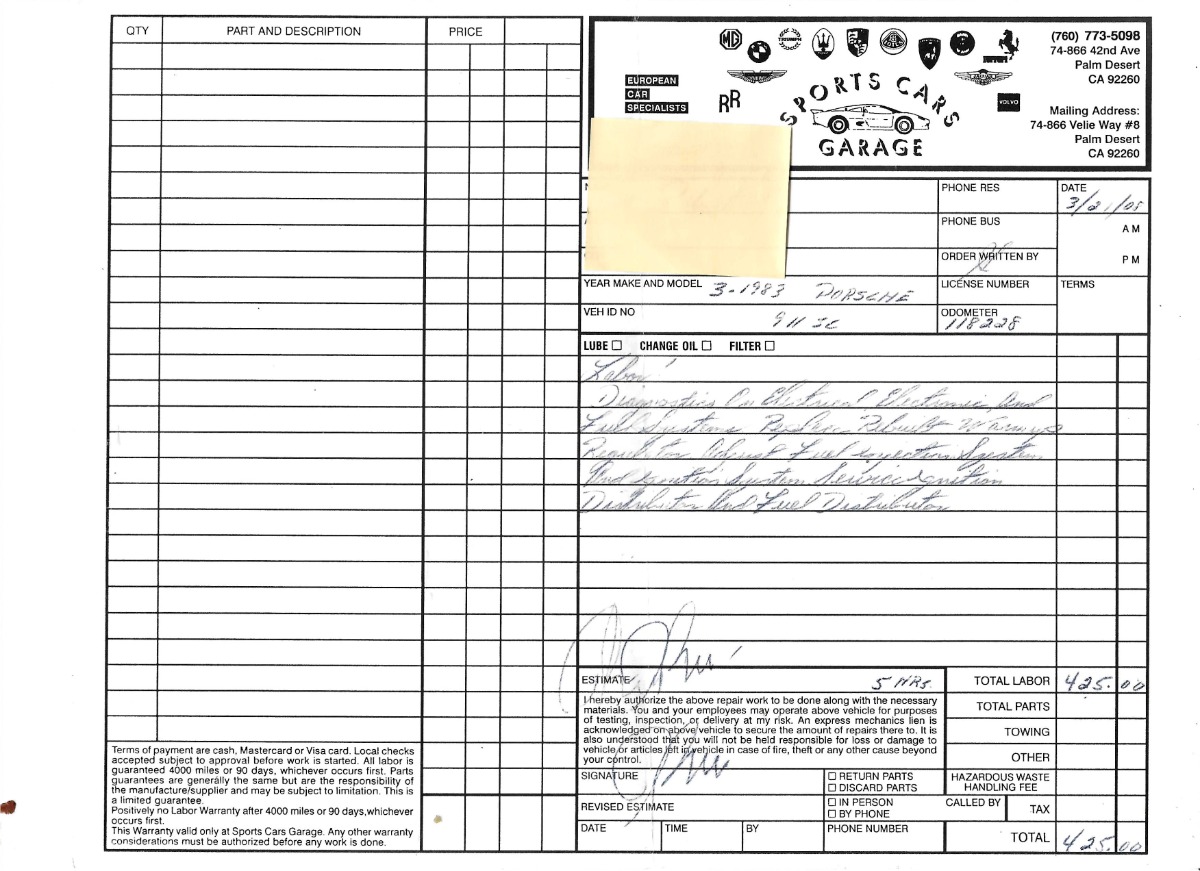 QTY PART AND DESCRIPTION PRICE
MG
TRIUMPH
Ferrari
VOLVO
RR
EUROPEAN
CAR
SPECIALISTS
SPORTS CARS
GARAGE
(760) 773-5098
74-866 42nd Ave
Palm Desert
CA 92260
Mailing Address:
74-866 Velie Way #8
Palm Desert
CA 92260
PHONE RES
DATE
3/21/05
PHONE BUS
AM
ORDER WRITTEN BY
PM
YEAR MAKE AND MODEL 3-1983 PORSCHE
LICENSE NUMBER
TERMS
VEH ID NO 911 SC
ODOMETER
118228
LUBE ☐ CHANGE OIL ☐ FILTER ☐
Labor:
Diagnostics On Electrical Electronic, And
Fuel Systems. Replace Rebuilt Warmup
Regulator Adjust Fuel injection System
And ignition System Service ignition
Distributor And Fuel Distributor
ESTIMATE 5 HRS.
TOTAL LABOR 425.00
I hereby authorize the above repair work to be done along with the necessary
materials. You and your employees may operate above vehicle for purposes
of testing, inspection, or delivery at my risk. An express mechanics lien is
acknowledged on above vehicle to secure the amount of repairs there to. It is
also understood that you will not be held responsible for loss or damage to
vehicle or articles left in vehicle in case of fire, theft or any other cause beyond
your control.
TOTAL PARTS
TOWING
OTHER
SIGNATURE
☐ RETURN PARTS
☐ DISCARD PARTS
HAZARDOUS WASTE
HANDLING FEE
REVISED ESTIMATE
☐ IN PERSON
☐ BY PHONE
CALLED BY
TAX
DATE TIME BY PHONE NUMBER
TOTAL 425.00
Terms of payment are cash, Mastercard or Visa card. Local checks
accepted subject to approval before work is started. All labor is
guaranteed 4000 miles or 90 days, whichever occurs first. Parts
guarantees are generally the same but are the responsibility of
the manufacture/supplier and may be subject to limitation. This is
a limited guarantee.
Positively no Labor Warranty after 4000 miles or 90 days,whichever
occurs first.
This Warranty valid only at Sports Cars Garage. Any other warranty
considerations must be authorized before any work is done.